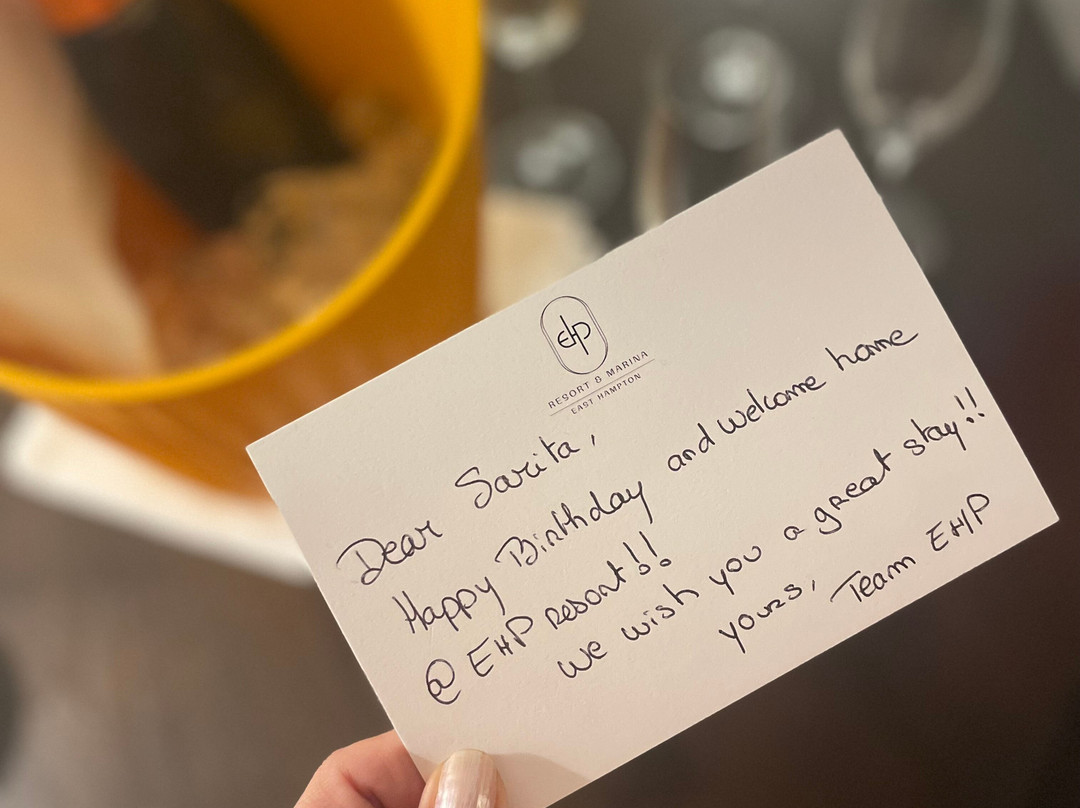 EHP
RESORT & MARINA
EAST HAMPTON
Dear Sarita,
Happy Birthday and welcome home
@ EHP resort!!
we wish you a great stay!!
yours,
Team EHP